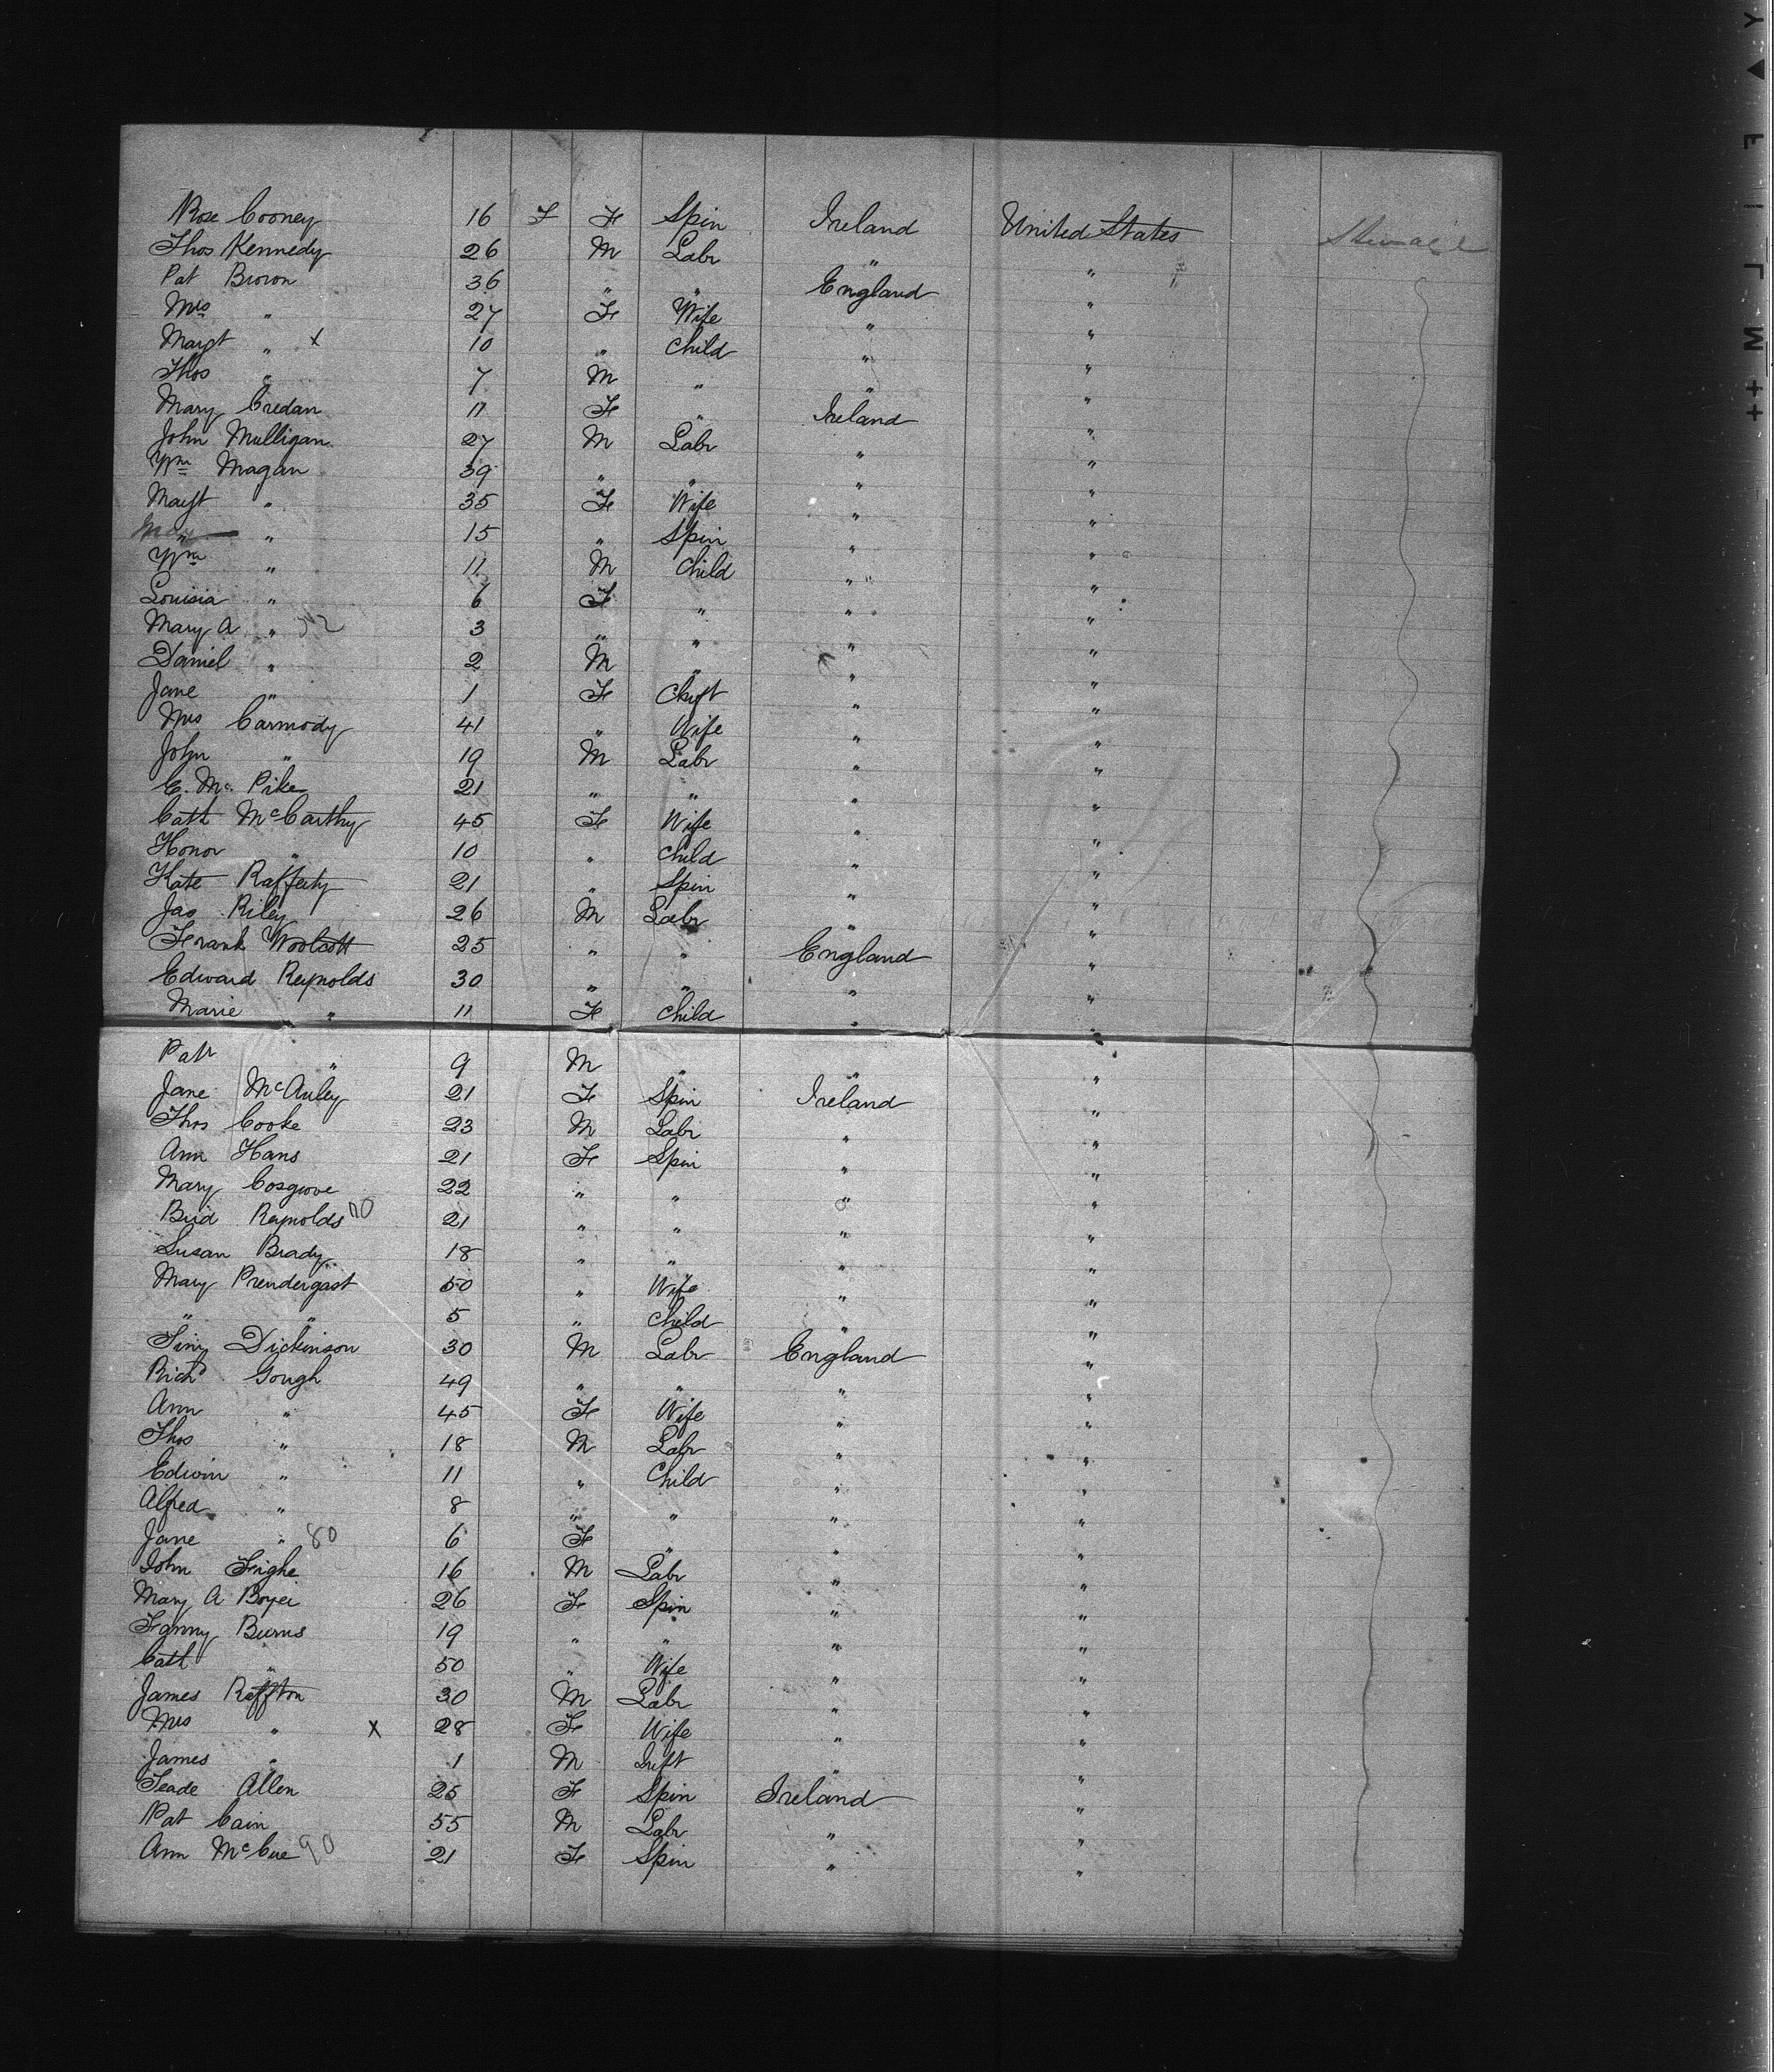 Rose Cooney 16 F Spin Ireland United States
Thos Kennedy 26 M Labr " "
Pat Brown 36 " " England "
Mrs " 27 F Wife " "
Margt " x 10 " Child " "
Thos " 7 M " " "
Mary Credan 11 F " Ireland "
John Mulligan 27 M Labr " "
Wm Magan 39 " " " "
Margt " 35 F Wife " "
" 15 " Spin " "
Wm " 11 M Child " "
Louisia " 6 F " " "
Mary A " 3 " " " "
Daniel " 2 M " " "
Jane " 1 F " "
Mrs Carmody 41 " Wife " "
John " 19 M Labr " "
C. Mc Pike 21 " " " "
Cath McCarthy 45 F Wife " "
Honor " 10 " Child " "
Kate Rafferty 21 " Spin " "
Jas Riley 26 M Labr " "
Frank Woolcott 25 " " England "
Edward Reynolds 30 " " " "
Marie " 11 F Child " "
Patk " 9 M " " "
Jane McAuley 21 F Spin Ireland "
Thos Cooke 23 M Labr " "
Ann Hans 21 F Spin " "
Mary Cosgrove 22 " " " "
Brid Reynolds 70 21 " " " "
Susan Brady 18 " " " "
Mary Prendergast 50 " Wife " "
" " 5 " Child " "
Dickinson 30 M Labr England "
Richd Gough 49 " " " "
Ann " 45 F Wife " "
Thos " 18 M Labr " "
Edwin " 11 " Child " "
Alfred " 8 " " " "
Jane " 80 6 F " " "
John 16 M Labr " "
Mary A 26 F Spin " "
Fanny Burns 19 " " " "
Cath " 50 " Wife " "
James 30 M Labr " "
Mrs " x 28 F Wife " "
James " 1 M Inft " "
Allen 25 F Spin Ireland "
Pat Cain 55 M Labr " "
Ann McCue 90 21 F Spin " "